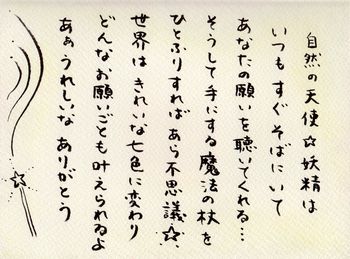 自然の天使☆妖精は
いつもすぐそばにいて
あなたの願いを聴いてくれる…
そうして手にする魔法の杖を
ひとふりすればあら不思議☆
世界はきれいな七色に変わり
どんなお願いごとも叶えられるよ
あぁうれしいな ありがとう